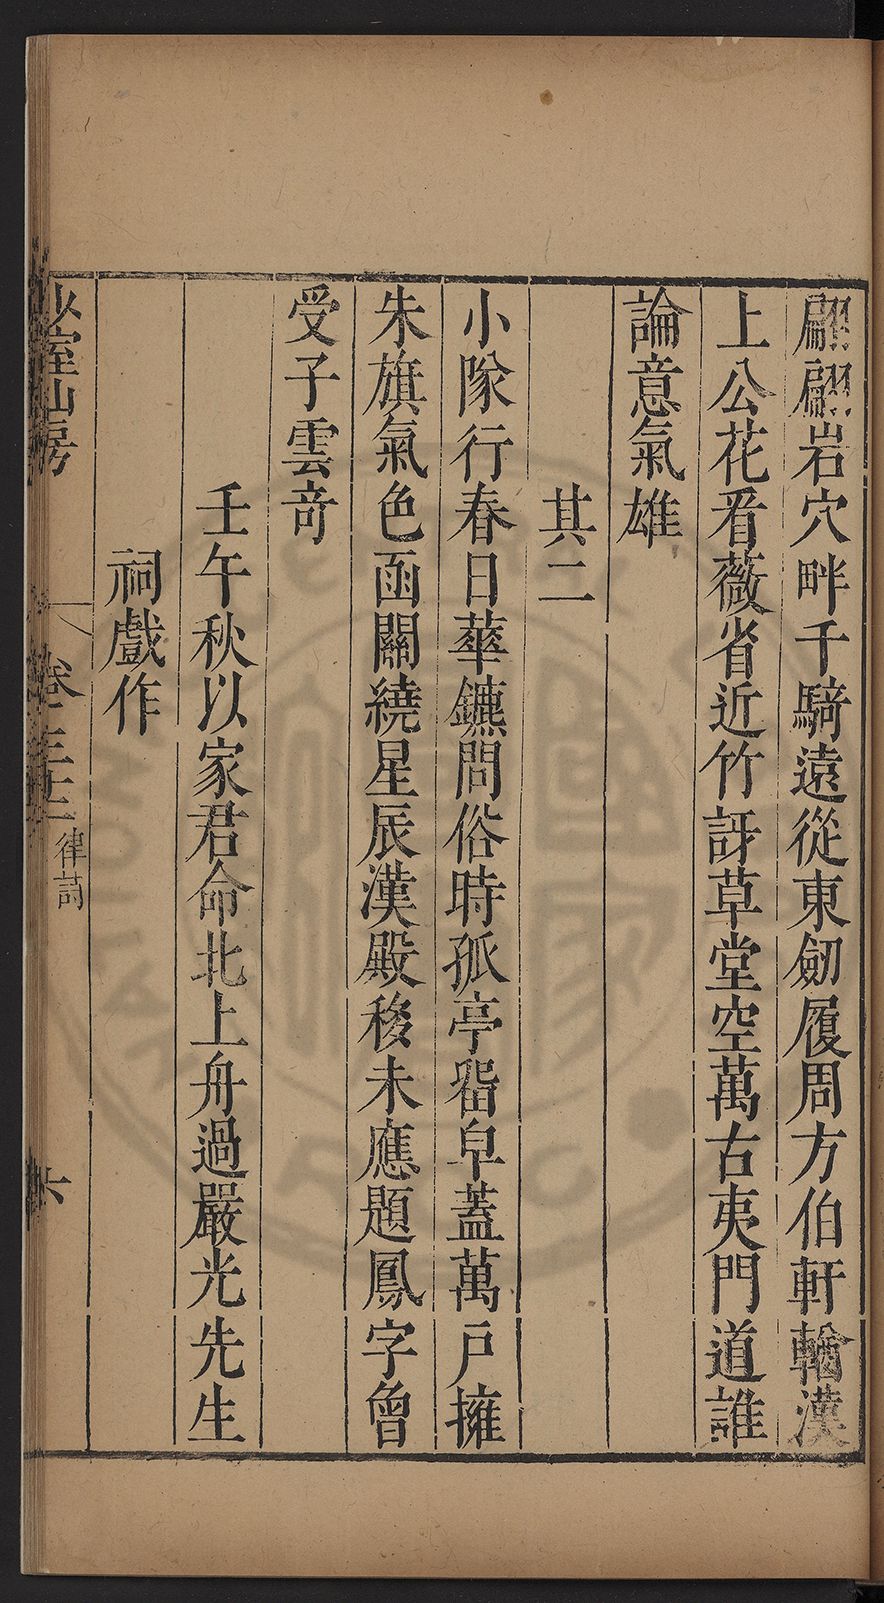 翩翩岩穴畔千騎遠從東劒履周方伯軒輶漢
上公花看薇省近竹訝草堂空萬古夷門道誰
論意氣雄
其二
小隊行春日華鑣問俗時孤亭畱皁蓋萬戸擁
朱旗氣色函關繞星辰漢殿移未應題鳳字曾
受子雲竒
壬午秋以家君命北上舟過嚴光先生
祠戲作
少室山房
卷三十二
律詩
六